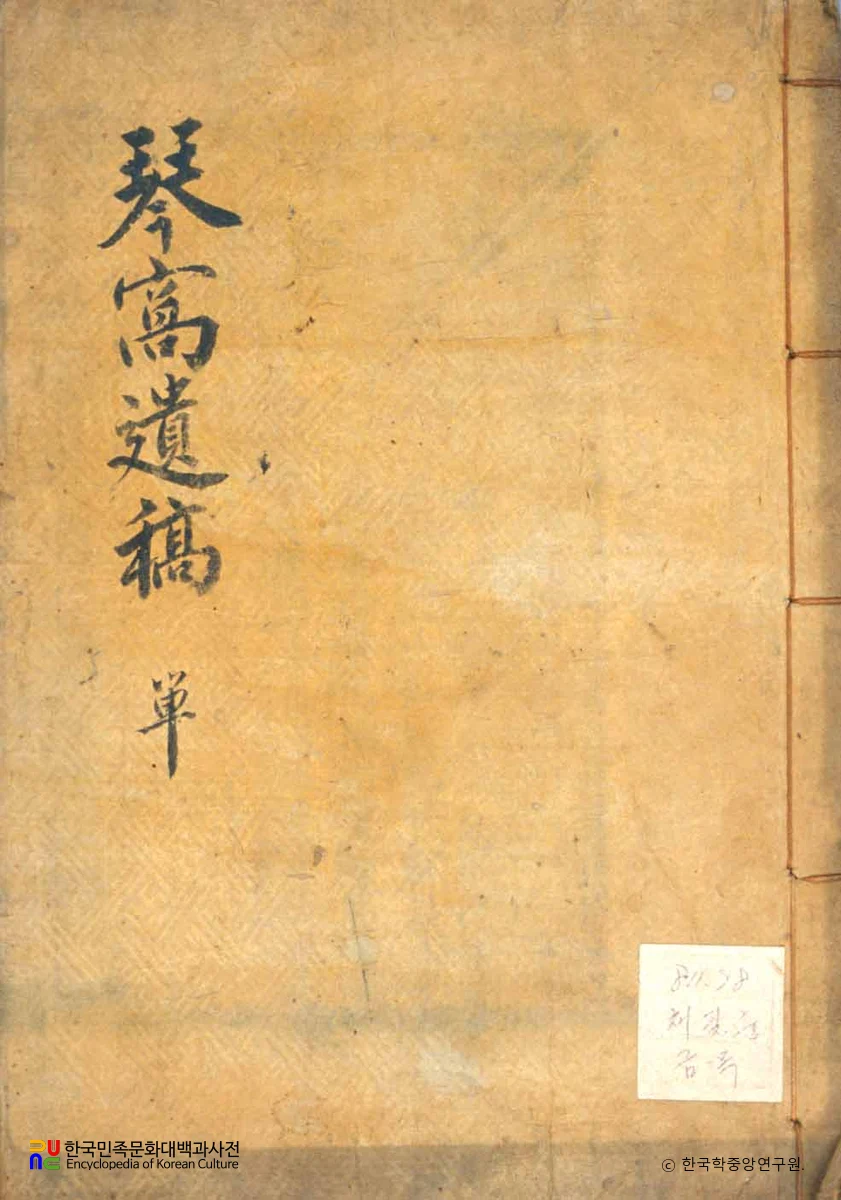 琴窩遺稿 単
811.98
한국민족문화대백과사전
Encyclopedia of Korean Culture
ⓒ 한국학중앙연구원.